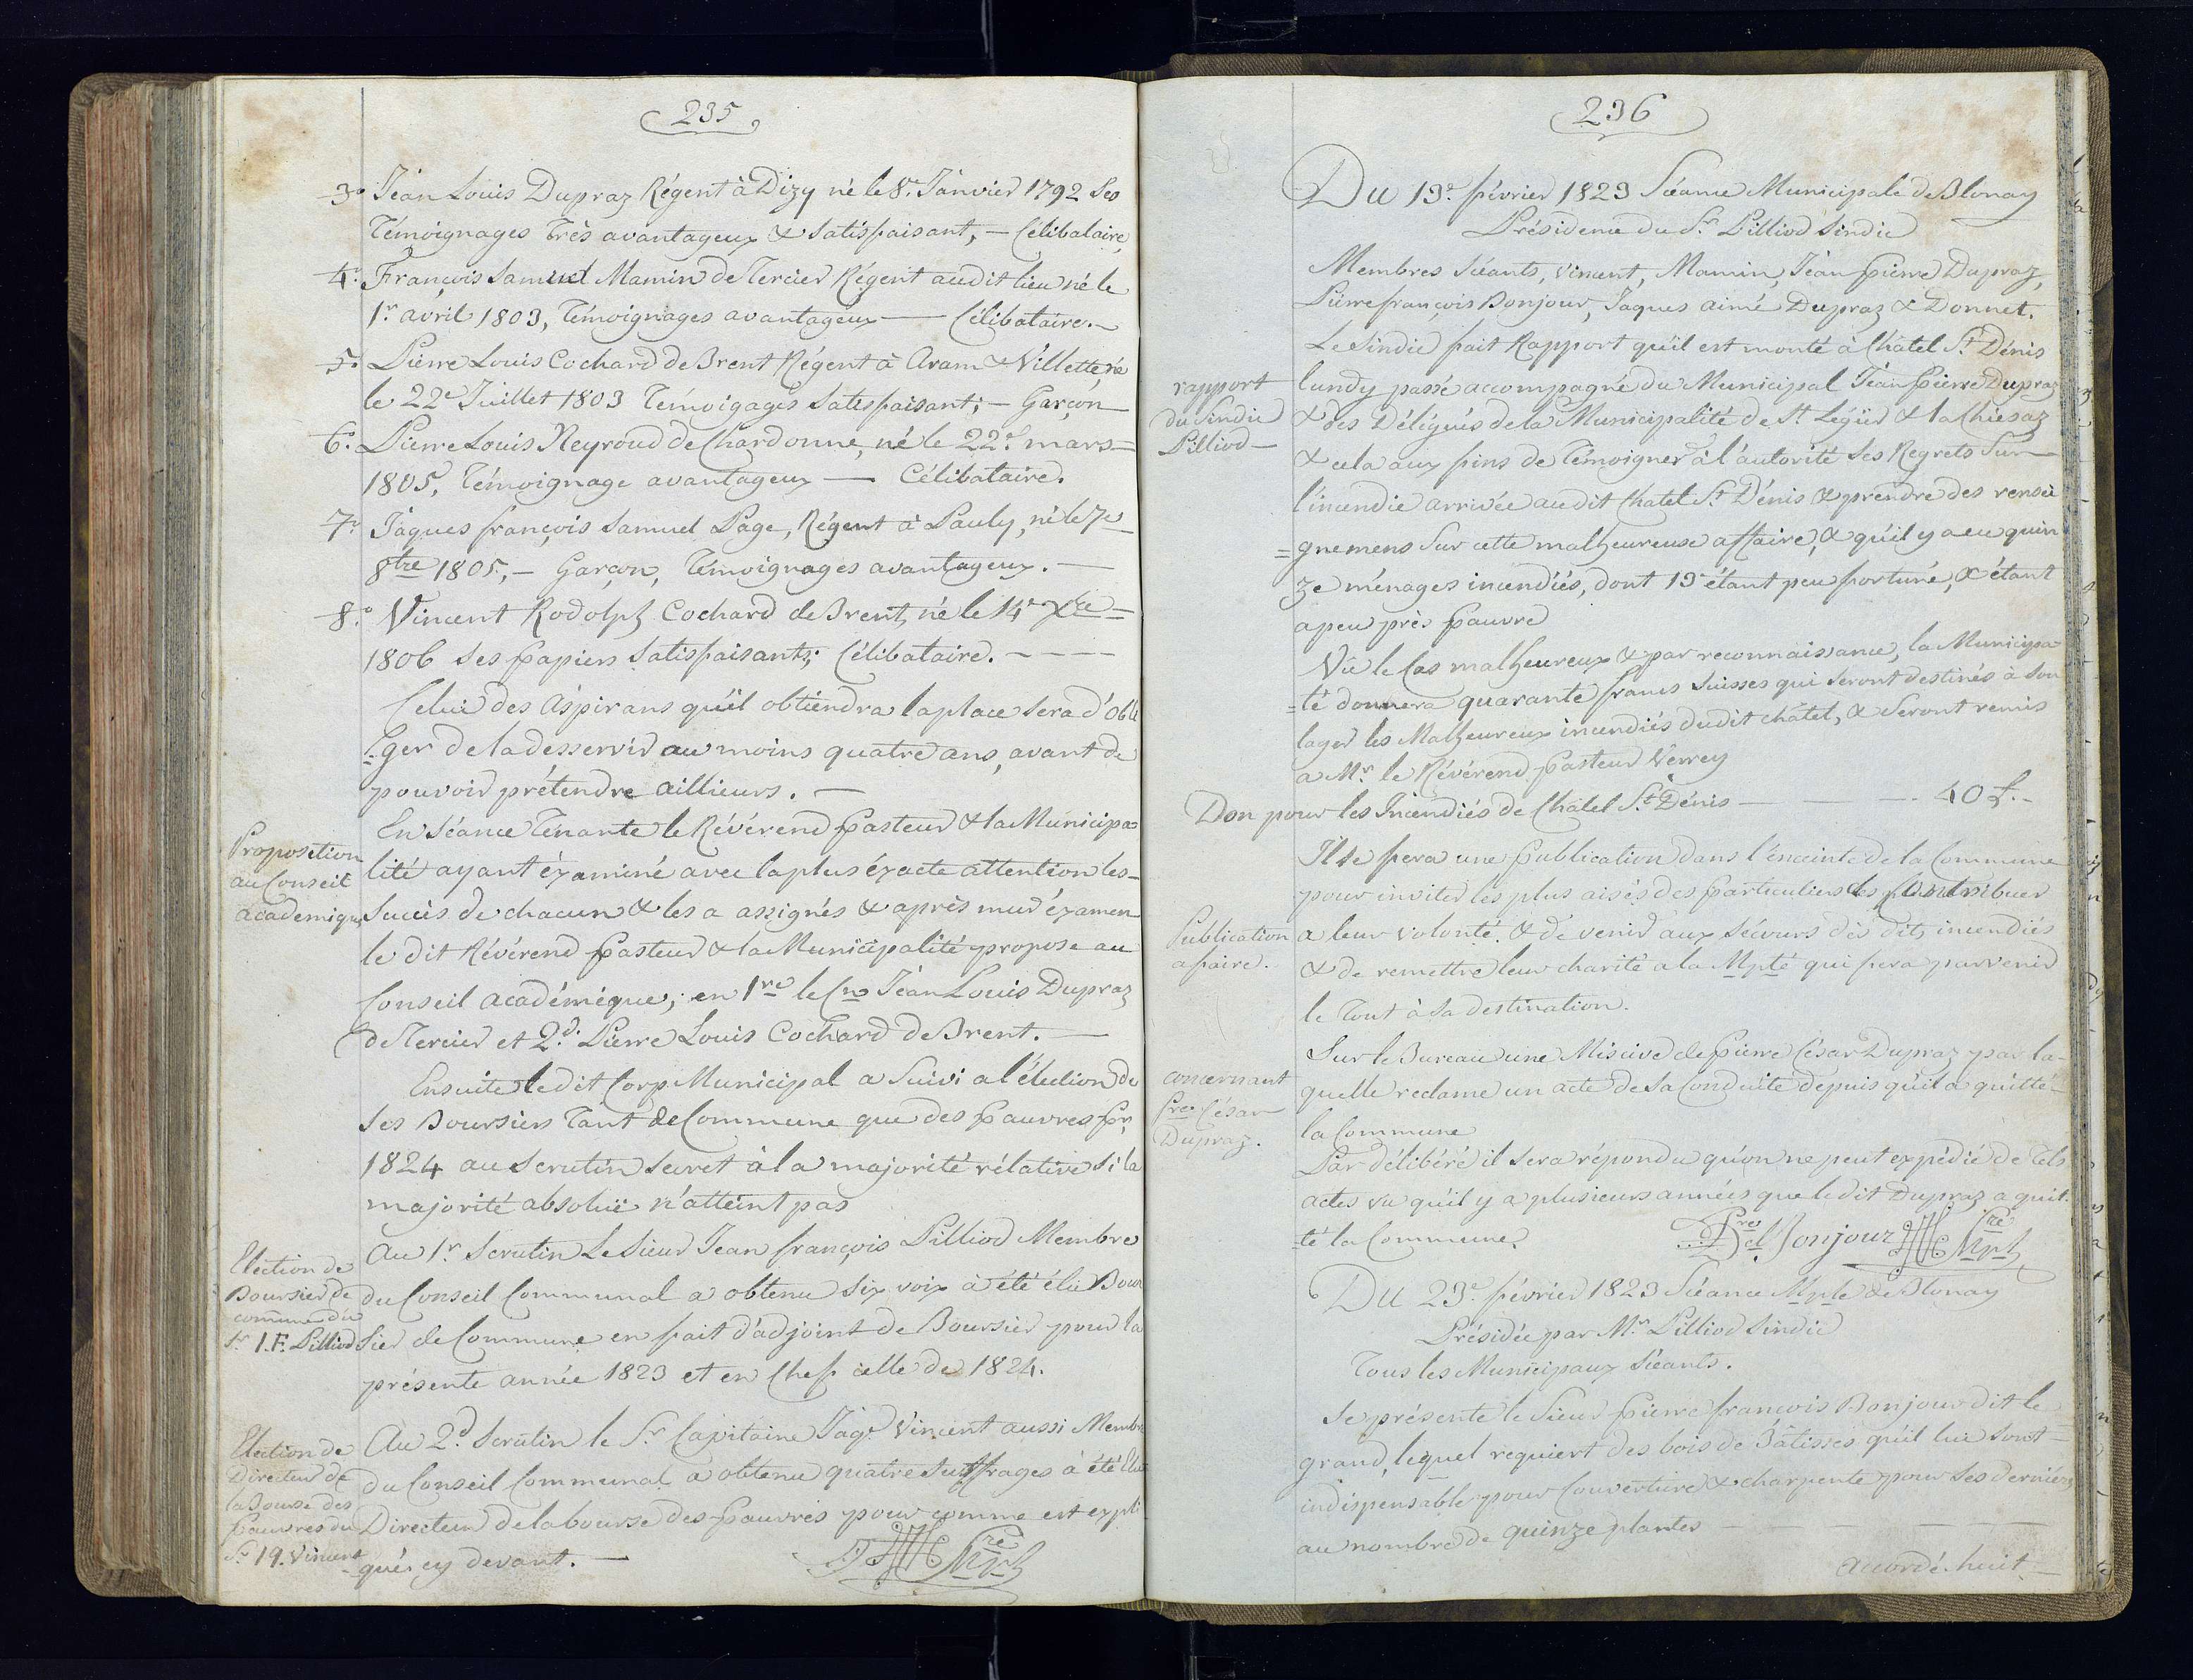 235
3.° Jéan Louis Dupraz Régent à Dizy né le 8.e Janvier 1792 Ses
Témoignages Très avantageux & satisfaisant, — Célibataire,
4.° François Samuel Mamin de Tercier Régent audit lieu né le
1.r avril 1803, Témoignages avantageux — Célibataire. —
5.° Pierre Louis Cochard de Brent Régent à Aran & Villette, né
le 22e Juillet 1803 Témoigages Satisfaisant; — Garçon
6.° Pierre Louis Neyroud de Chardonne, né le 22.e mars =
1805, Témoignage avantageux — Célibataire.
7.° Jâques françois Samuel Page, Régent à Pauly, né le 7e
8bre 1805, — Garçon, Témoignages avantageux. —
8.° Vincent Rodolph Cochard de Brent, né le 14e Xbre =
1806 ses papiers Satisfaisants; Célibataire. — — — —
Celui des Aspirans qu'il obtiendra la place sera d'obli
=ger de la desservir au moins quatre ans, avant de
pouvoir prétendre aillieurs. —
En Séance Tenante le Révérend Pasteur & la Municipa=
Proposition
au Conseil
académique
lité ayant éxaminé avec la plus éxacte attention les —
Succès de chacun & les a assignés & après mur éxamen
le dit Révérend Pasteur & la Municipalité propose au
Conseil académique; en 1re le Sr Jéan Louis Dupraz
de Tercier et 2.d Pierre Louis Cochard de Brent. —
Ensuite le dit Corp Municipal a Suivi a l'élection de
ses Boursiers Tant de Commune que des pauvres pr
1824 au Scrutin secret à la majorité rélative si la
majorité absolüe n'atteint pas
Election de
Boursier de
commune du
Sr. I. F. Pilliod
Au 1.r Scrutin Le Sieur Jean françois Pilliod Membre
du Conseil Communal a obtenu Six voix à été élu Bour
sier de Commune en fait d'adjoint de Boursier pour la
présente année 1823 et en Chef celle de 1824.
Election de
Directeur de
la Bourse des
pauvres du
Sr. 19. Vincent
Au 2.d Scrutin le Sr Capitaine Jaq.e Vincent aussi Membre
du Conseil Communal a obtenu quatre Suffrages à été Elu
Directeur de la bourse des pauvres pour comme est expli
=qué cy devant. —
236
Du 13.e février 1823 Séance Municipale de Blonay
Présidence du Sr. Pilliod Sindic
Membres Séants, Vincent, Mamin, Jéan pierre Dupraz,
Pierre françois Bonjour, Jaques aimé Dupraz & Donnet.
rapport
du Sindic
Pilliod —
Le Sindic fait Rapport qu'il est monté à Châtel St. Dénis
lundy passé accompagné du Municipal Jéan pierre Dupraz
& des Délégués de la Municipalité de St. Légier & la Chiésaz
& cela aux fins de Témoigner à l'autorité ses Regrets Sur
l'incendie arrivée audit Chatel St. Dénis & prendre des rensei
=gnemens Sur cette malheureuse affaire, & qu'il y a eu quin
ze ménages incendiés, dont 13 étant peu fortuné, & étant
apeu près pauvre
Vû le Cas malheureux & par reconnaissance, la Municipa
=té donnera quarante francs Suisses qui seront destinés à Sou
lager les Malheureux incendiés dudit châtel, & Seront remis
a Mr. le Révérend Pasteur Verrey
Don pour les Incendiés de Châtel St. Dénis — — — 40 f. —
Il se fera une publication dans l'énceinte de la Commune
pour inviter les plus aisés des particuliers contribuer
Publication
a faire.
a leur volonté. & de venir aux Sécours dès dits incendiés
& de remettre leur charité a la Mpté qui fera parvenir
le Tout à Sa destination.
concernant
Pre César
Dupraz.
Sur le Bureau une Missive de pierre César Dupraz par la-
quelle reclame un acte de Sa Conduite depuis qu'il a quitté
la Commune
Par délibéré il sera répondu qu'on ne peut expédié de Tels
actes vu qu'il y a plusieurs années que le dit Dupraz a quit.
=té la Commune.
Bonjour
Du 23.e février 1823 Séance Mple de Blonay
Présidée par Mr. Pilliod Sindic
Tous les Municipaux Séants.
Se présente le Sieur pierre francois Bonjour dit le
grand, lequel requiert des bois de Bâtisses qu'il lui sont
indispensable pour Couverture & charpente pour ses derniérs
au nombre de quinze plantes — — — —
accordé. huit. —